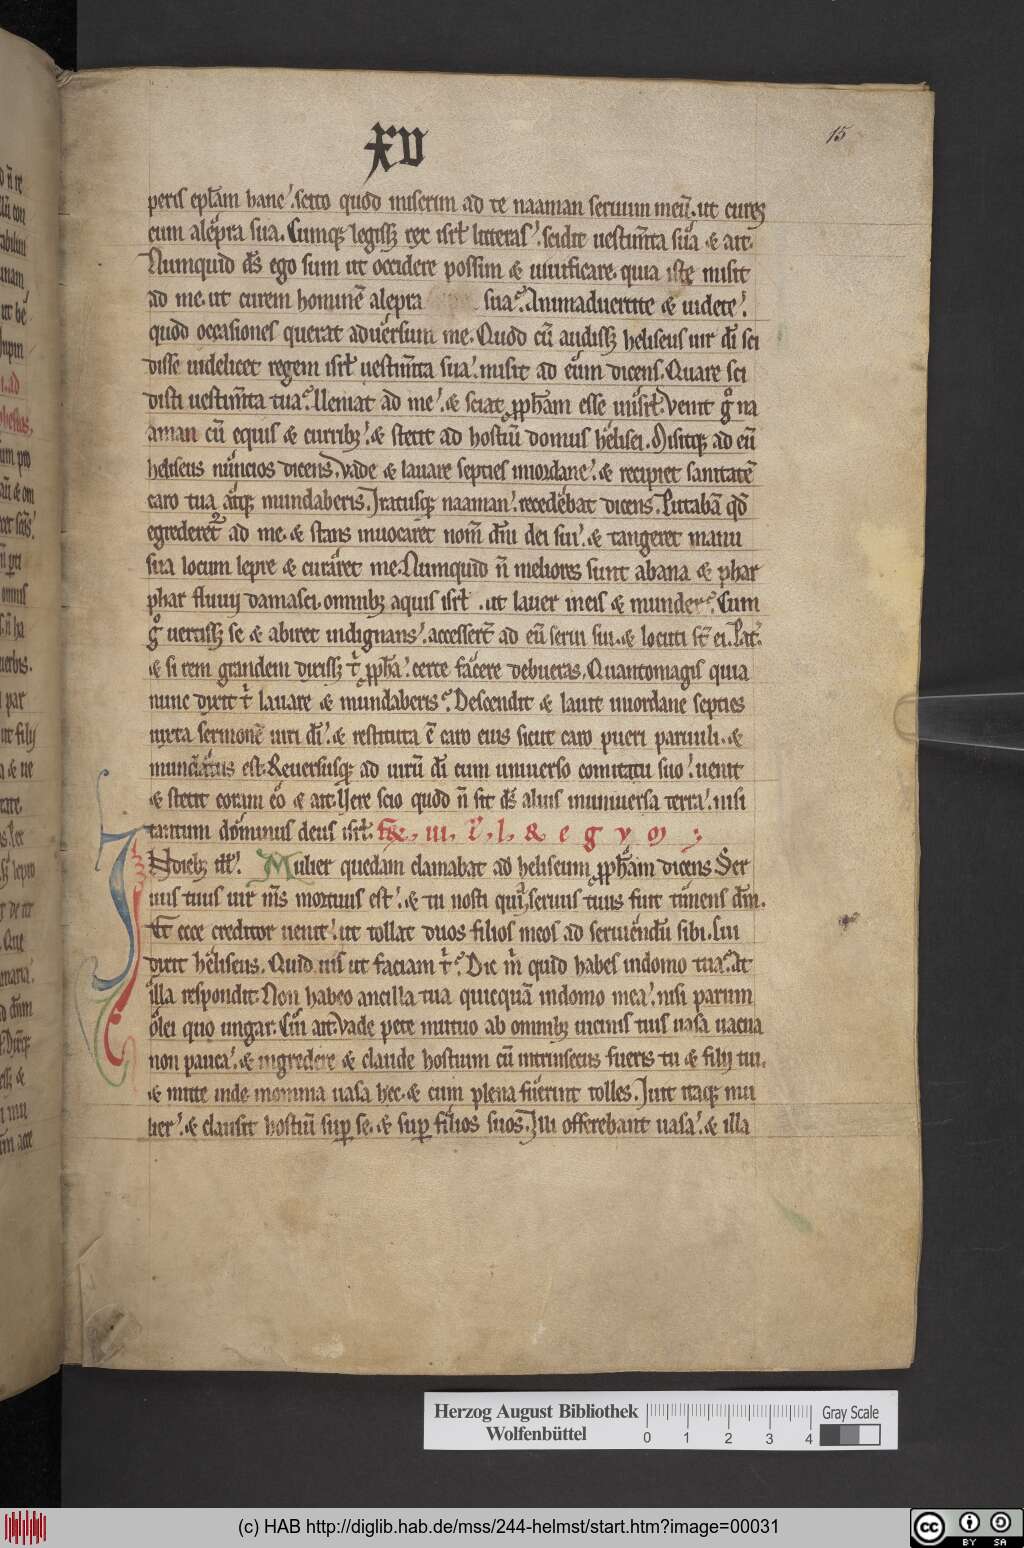 xv
15
peris epl̄am hanc. scito quod miserim ad te naaman seruum meū. ut cures
eum alepra sua. Cumq; legiss; rex isrl̄ litteras. scidit uestim̄ta sua & ait.
Numquid ds̄ ego sum ut occidere possim & uiuificare. quia iste misit
ad me. ut curem hominē alepra sua. Animaduertite & uidete.
quod occasiones querat aduersum me. Quod cū audiss; heliseus uir dī sci
disse uidelicet regem isrl̄ uestim̄ta sua. misit ad eum dicens. Quare sci
disti uestim̄ta tua. Ueniat ad me. & sciat ꝓph̄am esse inisrl̄. Venit gͦ na
aman cū equis & currib;. & stetit ad hostiū domus helisei. Misitq; ad eū
heliseus nuncios dicens. Vade & lauare septies iniordane. & recipiet sanitatē
caro tua atq; mundaberis. Iratusq; naaman. recedebat dicens. Putabā qd̄
egrederet̄ ad me. & stans inuocaret nom̄ dn̄i dei sui. & tangeret manu
sua locum lepre & curaret me. Numquid n̄ meliores sunt abana & phar
phar fluuij damasci. omnib; aquis isrl̄. ut lauer ineis & munder. Cum
gͦ uertiss; se & abiret indignans. accessert̄ ad eū serui sui. & locuti st̄ ei. Pat̄.
& si rem grandem dixiss; t̄ ꝓph̄a. certe facere debueras. Quantomagis quia
nunc dixit t̄ lauare & mundaberis. Descendit & lauit iniordane septies
iuxta sermonē uiri dī. & restituta ē caro eius sicut caro pueri paruuli. &
mundatus est. Reuersusq; ad uirū dī cum uniuerso comitatu suo. uenit
& stetit coram eo & ait. Uere scio quod n̄ sit ds̄ alius inuniuersa terra. nisi
tantum dominus deus isrl̄. fr̄. iii. l. l. & e g y m
INdieb; ill̄. Mulier quedam clamabat ad heliseum ꝓph̄am dicens. Ser
uus tuus uir m̄s mortuus est. & tu nosti quia seruus tuus fuit timens dm̄.
Et ecce creditor uenit. ut tollat duos filios meos ad seruiendū sibi. Cui
dixit heliseus. Quid uis ut faciam t̄. Dic m̄ quid habes indomo tua. At
illa respondit. Non habeo ancilla tua quicquā indomo mea. nisi parum
olei quo ungar. Cui ait. Vade pete mutuo ab omnib; uicinis tuis uasa uacua
non pauca. & ingredere & claude hostium cū intrinsecus fueris tu & filij tui.
& mitte inde inomnia uasa hec. & cum plena fuerint tolles. Iuit itaq; mu
lier. & clausit hostiū sup̄ se. & sup̄ filios suos. Illi offerebant uasa. & illa
Herzog August Bibliothek
Wolfenbüttel
Gray Scale
0 1 2 3 4
(c) HAB http://diglib.hab.de/mss/244-helmst/start.htm?image=00031
cc BY SA